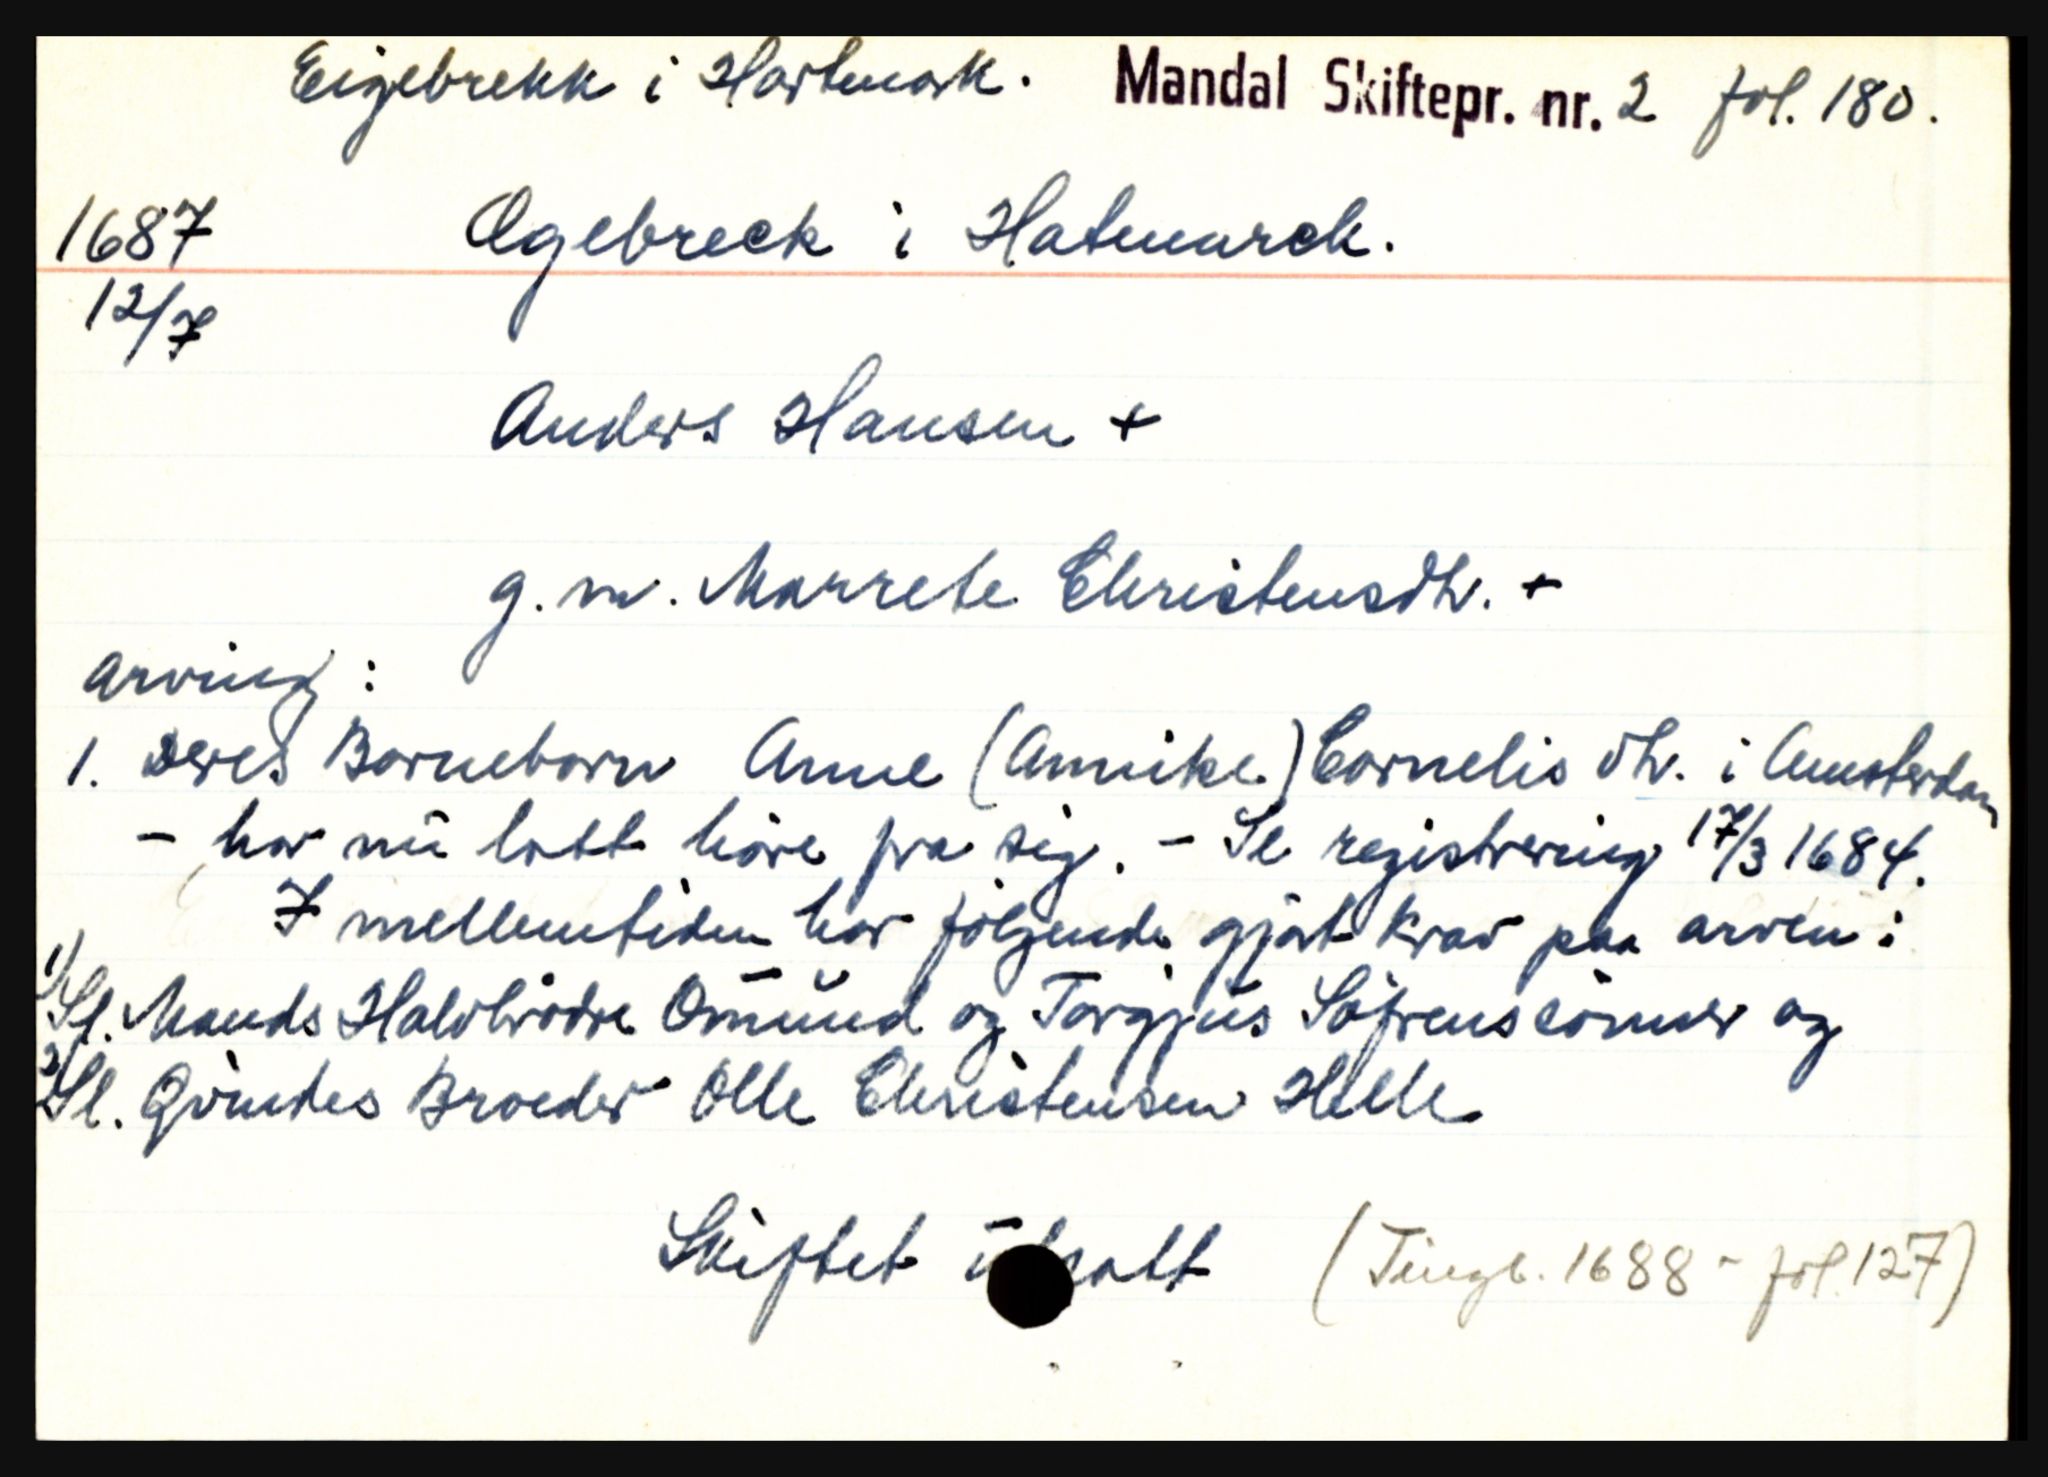 Eigebrekk i Hartmark. Mandal Skiftepr. nr. 2 fol. 180.
1687 Øgebreck i Hatmarck.
12/7
Anders Hansen +
g. m. Marrete Christensdtr. +
arving:
1. Deres Borneborn Anne (Annike) Cornelis dtr. i Amsterdam
- har nū latt høre fra sig. - Se registrering 17/3 1684.
I mellemtiden har følgende gjørt krav paa arven:
1) Sl. Mands Halvbrødre Omūnd og Torgjūs Søfrensønner og
2) Sl. Qvindes Broeder Olle Christensen Helle
Skiftet ūtsatt (Tingb. 1688 - fol. 127)